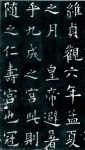 維貞觀六年孟夏
之月皇帝避暑
乎九成之宮此則
隨之仁壽宮也冠